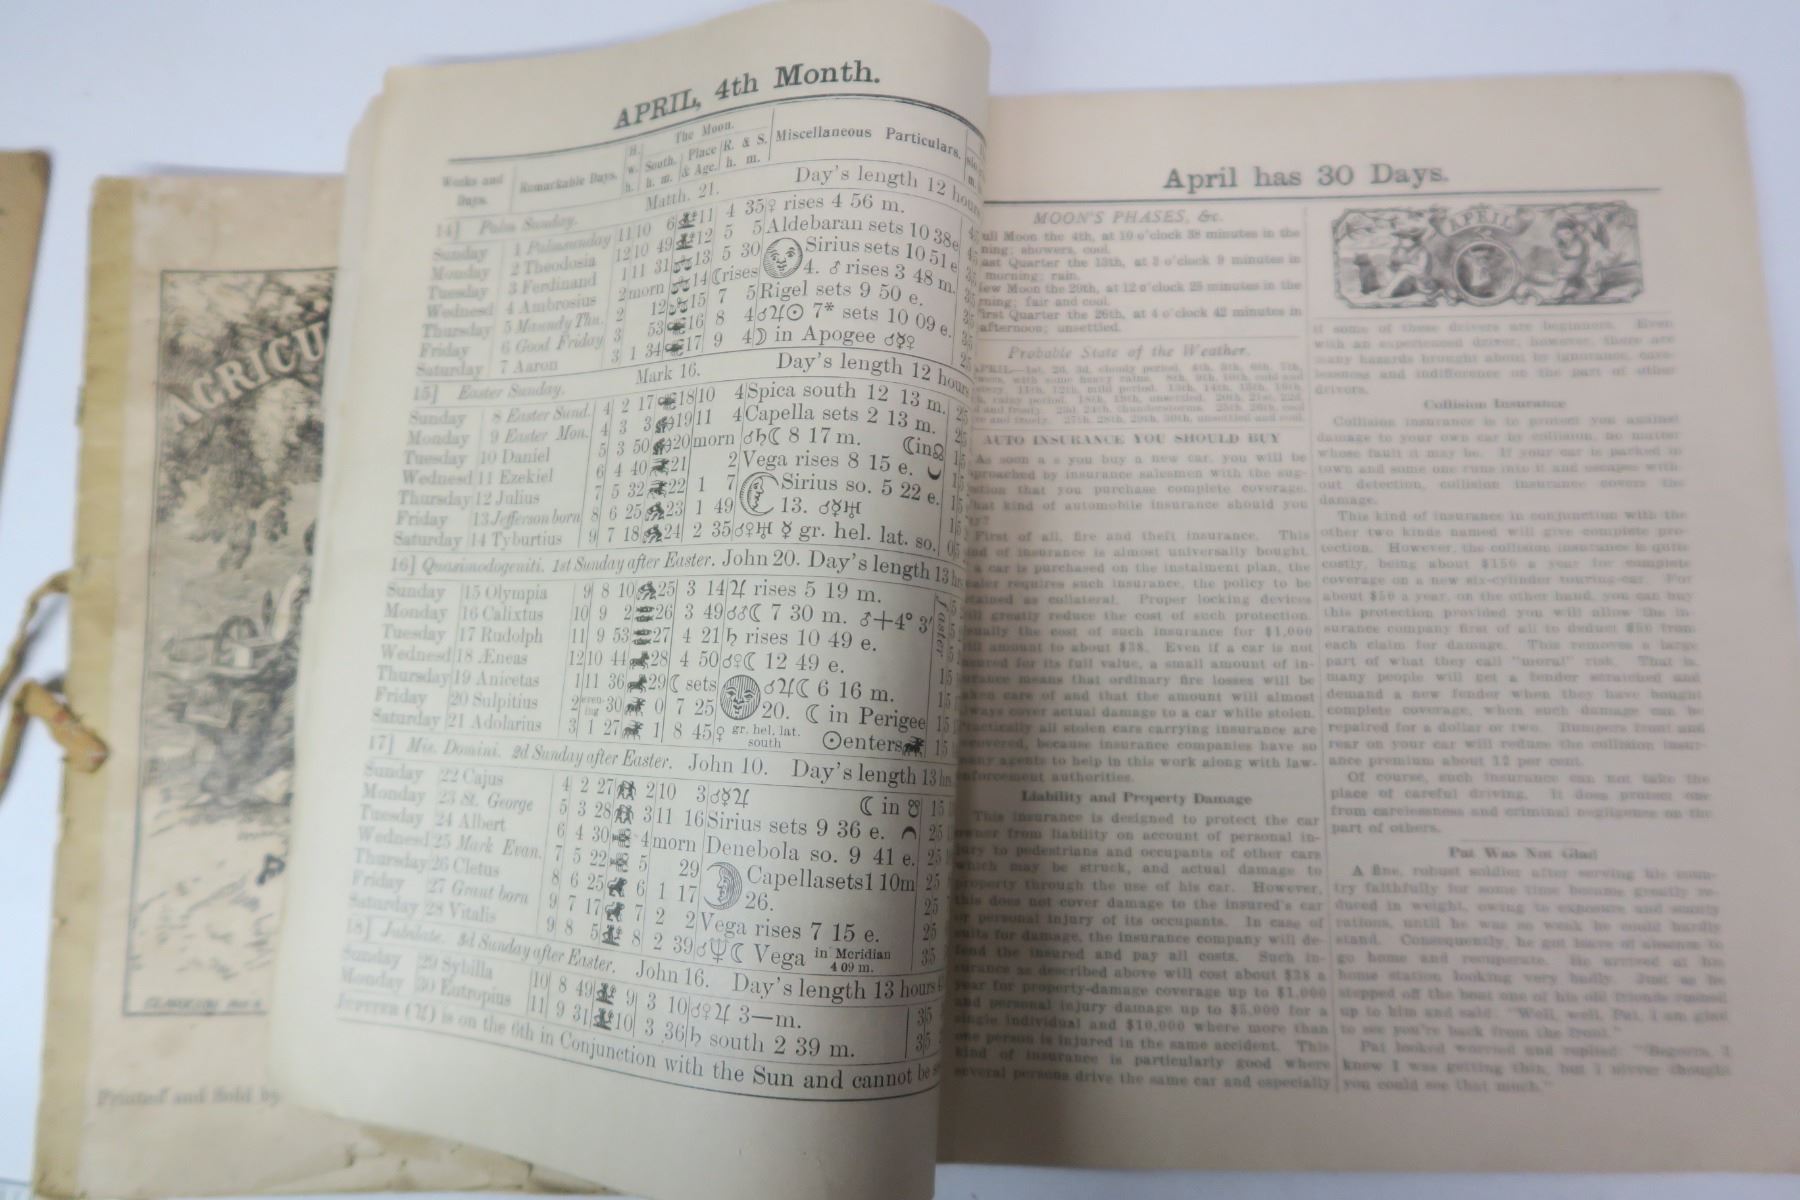 AGRICU
CLARKSON
Printed and Sold by
APRIL, 4th Month.
Weeks and Days. Remarkable Days. H. w. h. The Moon. South. h. m. Place & Age. R. & S. h. m. Miscellaneous Particulars.
14] Palm Sunday. Matth. 21. Day's length 12 hours
Sunday 1 Palmsunday 11 10 6 11 4 35 ♀ rises 4 56 m.
Monday 2 Theodosia 12 10 49 12 5 5 Aldebaran sets 10 38 e
Tuesday 3 Ferdinand 1 11 31 13 5 30 Sirius sets 10 51 e
Wednesd 4 Ambrosius 2 morn 14 ☾ rises 4. ♂ rises 3 48 m.
Thursday 5 Maundy Thu. 2 12 15 7 5 Rigel sets 9 50 e.
Friday 6 Good Friday 3 53 16 8 4 ☌♃☉ 7* sets 10 09 e.
Saturday 7 Aaron 3 1 34 17 9 4 ☽ in Apogee ☌☿♀
15] Easter Sunday. Mark 16. Day's length 12 hour
Sunday 8 Easter Sund. 4 2 17 18 10 4 Spica south 12 13 m.
Monday 9 Easter Mon. 4 3 3 19 11 4 Capella sets 2 13 m.
Tuesday 10 Daniel 5 3 50 20 morn ☌♄☾ 8 17 m. ☾ in ☊
Wednesd 11 Ezekiel 6 4 40 21 2 Vega rises 8 15 e.
Thursday 12 Julius 7 5 32 22 1 7 Sirius so. 5 22 e.
Friday 13 Jefferson born 8 6 25 23 1 49 13. ☌☿♅
Saturday 14 Tyburtius 9 7 18 24 2 35 ☌♀♅ ☿ gr. hel. lat. so.
16] Quasimodogeniti. 1st Sunday after Easter. John 20. Day's length 13 hr
Sunday 15 Olympia 9 8 10 25 3 14 ♃ rises 5 19 m.
Monday 16 Calixtus 10 9 2 26 3 49 ☌♂☾ 7 30 m. ♂+4° 3'
Tuesday 17 Rudolph 11 9 53 27 4 21 ♄ rises 10 49 e.
Wednesd 18 Æneas 12 10 44 28 4 50 ☌♀☾ 12 49 e.
Thursday 19 Anicetas 1 11 36 29 ☾ sets ☌♃☾ 6 16 m.
Friday 20 Sulpitius 2 evening 30 0 7 25 20. ☾ in Perigee
Saturday 21 Adolarius 3 1 27 1 8 45 ♀ gr. hel. lat. south ☉ enters
faster
17] Mis. Domini. 2d Sunday after Easter. John 10. Day's length 13 hrs
Sunday 22 Cajus 4 2 27 2 10 3 ☌☿♃ ☾ in ☋
Monday 23 St. George 5 3 28 3 11 16 Sirius sets 9 36 e.
Tuesday 24 Albert 6 4 30 4 morn Denebola so. 9 41 e.
Wednesd 25 Mark Evan. 7 5 22 5 29 Capella sets 1 10m
Thursday 26 Cletus 8 6 25 6 1 17 26.
Friday 27 Grant born 9 7 17 7 2 2 Vega rises 7 15 e.
Saturday 28 Vitalis 9 8 5 8 2 39 ☌♆☾ Vega in Meridian 4 09 m.
18] Jubilate. 3d Sunday after Easter. John 16. Day's length 13 hours
Sunday 29 Sybilla 10 8 49 9 3 10 ☌♀♃ 3—m.
Monday 30 Eutropius 11 9 31 10 3 36 ♄ south 2 39 m.
JUPITER (♃) is on the 6th in Conjunction with the Sun and cannot be
April has 30 Days.
MOON'S PHASES, &c.
ull Moon the 4th, at 10 o'clock 38 minutes in the
ning; showers, cool.
ast Quarter the 13th, at 3 o'clock 9 minutes in
morning; rain.
New Moon the 20th, at 12 o'clock 25 minutes in the
ning; fair and cool.
First Quarter the 26th, at 4 o'clock 42 minutes in
afternoon; unsettled.
Probable State of the Weather.
APRIL—1st, 2d, 3d, cloudy period. 4th, 5th, 6th, 7th,
with some heavy rains. 8th, 9th, 10th, cold and
11th, 12th, mild period. 13th, 14th, 15th, 16th,
rainy period. 18th, 19th, unsettled. 20th, 21st, 22d,
and frosty. 23d, 24th, thunderstorms. 25th, 26th, cool
and frosty. 27th, 28th, 29th, 30th, unsettled and cool.
AUTO INSURANCE YOU SHOULD BUY
As soon a s you buy a new car, you will be
proached by insurance salesmen with the sug-
stion that you purchase complete coverage.
hat kind of automobile insurance should you
uy?
First of all, fire and theft insurance. This
ind of insurance is almost universally bought.
a car is purchased on the instalment plan, the
ealer requires such insurance, the policy to be
etained as collateral. Proper locking devices
ill greatly reduce the cost of such protection.
sually the cost of such insurance for $1,000
ill amount to about $38. Even if a car is not
nsured for its full value, a small amount of in-
urance means that ordinary fire losses will be
aken care of and that the amount will almost
lways cover actual damage to a car while stolen.
ractically all stolen cars carrying insurance are
ecovered, because insurance companies have so
many agents to help in this work along with law-
enforcement authorities.
Liability and Property Damage
This insurance is designed to protect the car
owner from liability on account of personal in-
jury to pedestrians and occupants of other cars
which may be struck, and actual damage to
property through the use of his car. However,
this does not cover damage to the insured's car
or personal injury of its occupants. In case of
suits for damage, the insurance company will de-
fend the insured and pay all costs. Such in-
surance as described above will cost about $38 a
year for property-damage coverage up to $1,000
and personal injury damage up to $5,000 for a
single individual and $10,000 where more than
one person is injured in the same accident. This
kind of insurance is particularly good where
several persons drive the same car and especially
APRIL
if some of these drivers are beginners. Even
with an experienced driver, however, there are
many hazards brought about by ignorance, care-
lessness and indifference on the part of other
drivers.
Collision Insurance
Collision insurance is to protect you against
damage to your own car by collision, no matter
whose fault it may be. If your car is parked in
town and some one runs into it and escapes with-
out detection, collision insurance covers the
damage.
This kind of insurance in conjunction with the
other two kinds named will give complete pro-
tection. However, the collision insurance is quite
costly, being about $150 a year for complete
coverage on a new six-cylinder touring-car. For
about $50 a year, on the other hand, you can buy
this protection provided you will allow the in-
surance company first of all to deduct $50 from
each claim for damage. This removes a large
part of what they call "moral" risk. That is,
many people will get a fender scratched and
demand a new fender when they have bought
complete coverage, when such damage can be
repaired for a dollar or two. Bumpers front and
rear on your car will reduce the collision insur-
ance premium about 12 per cent.
Of course, such insurance can not take the
place of careful driving. It does protect one
from carelessness and criminal negligence on the
part of others.
Pat Was Not Glad
A fine, robust soldier after serving his coun-
try faithfully for some time became greatly re-
duced in weight, owing to exposure and scanty
rations, until he was so weak he could hardly
stand. Consequently, he got leave of absence to
go home and recuperate. He arrived at his
home station looking very badly. Just as he
stepped off the boat one of his old friends rushed
up to him and said: "Well, well, Pat, I am glad
to see you're back from the front."
Pat looked worried and replied: "Begorra, I
knew I was getting thin, but I niver thought
you could see that much."